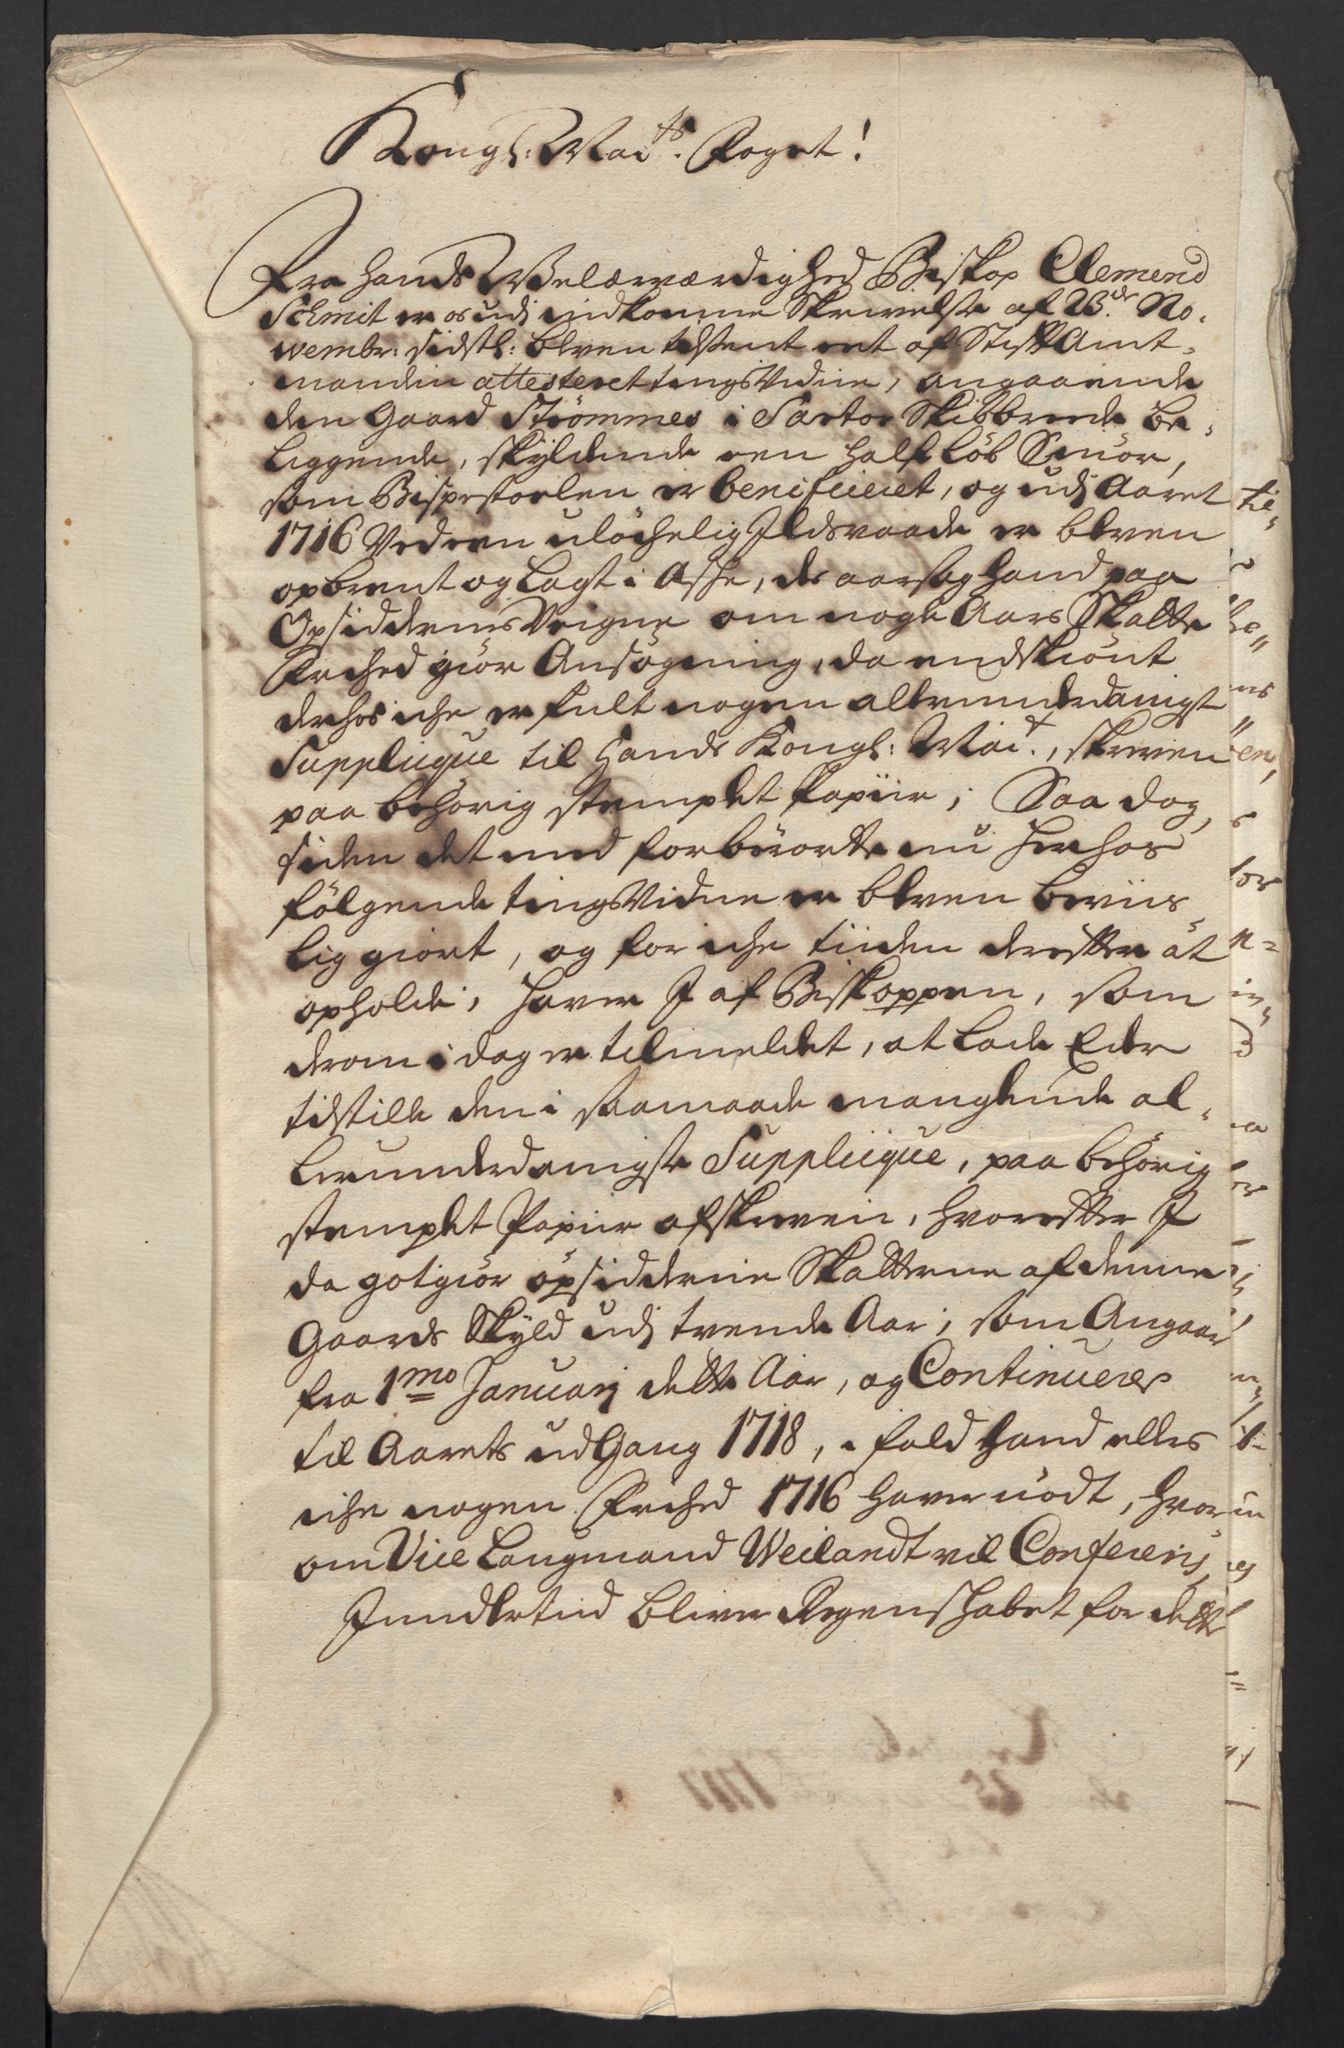 Kongl: Maits. Foget!
Fra Hands Wælærværdighed Biskop Clemend
Schmit er os udi indkomne Skrivelse af 23de No-
vembr: sidstl: bleven tilsent eet af StiftAmt-
manden attesteret tingsVidne, angaaende
den Gaard Strömmes i Sartor Skibbrede be-
liggende, skyldende een half Löb Smör,
som Bispestoelen er beneficeret, og udi Aaret
1716 Ved een ulöchelig Ildsvaade er bleven
opbrent og Lagt i Asche, des aarsag hand paa
Opsiddernes Veigne om nogle Aars Skatte
Frihed giör Ansögning, da endskiönt
derhos iche er fult nogen allerunderdanigst
Supplicque til Hands Kongl: Mait., skreven
paa behörig stemplet Papiir; Saa dog,
siden det med forberörte nu herhos
fölgende tingsVidne er bleven beviis
lig giort, og for iche tiiden derefter at
opholde, haver I af Biskoppen, som
derom i dag er tilmeldet, at Lade Eder
tilstille den i saamaade manglende al-
lerunderdanigste Supplicque, paa behörig
stemplet Papiir afskreven, hvorefter I
da gotgiör opsidderne Skatterne af denne
Gaards Skyld udi trende Aar, som Angaar
fra 1mo Januarj dette Aar, og Continuerer
til Aarets udGang 1718, i fald hand ellers
iche nogen Frihed 1716 haver nödt, hvor
om Vice Laugmand Weilandt vil Conferris,
Imidlertid bliver Regenschabet for dette